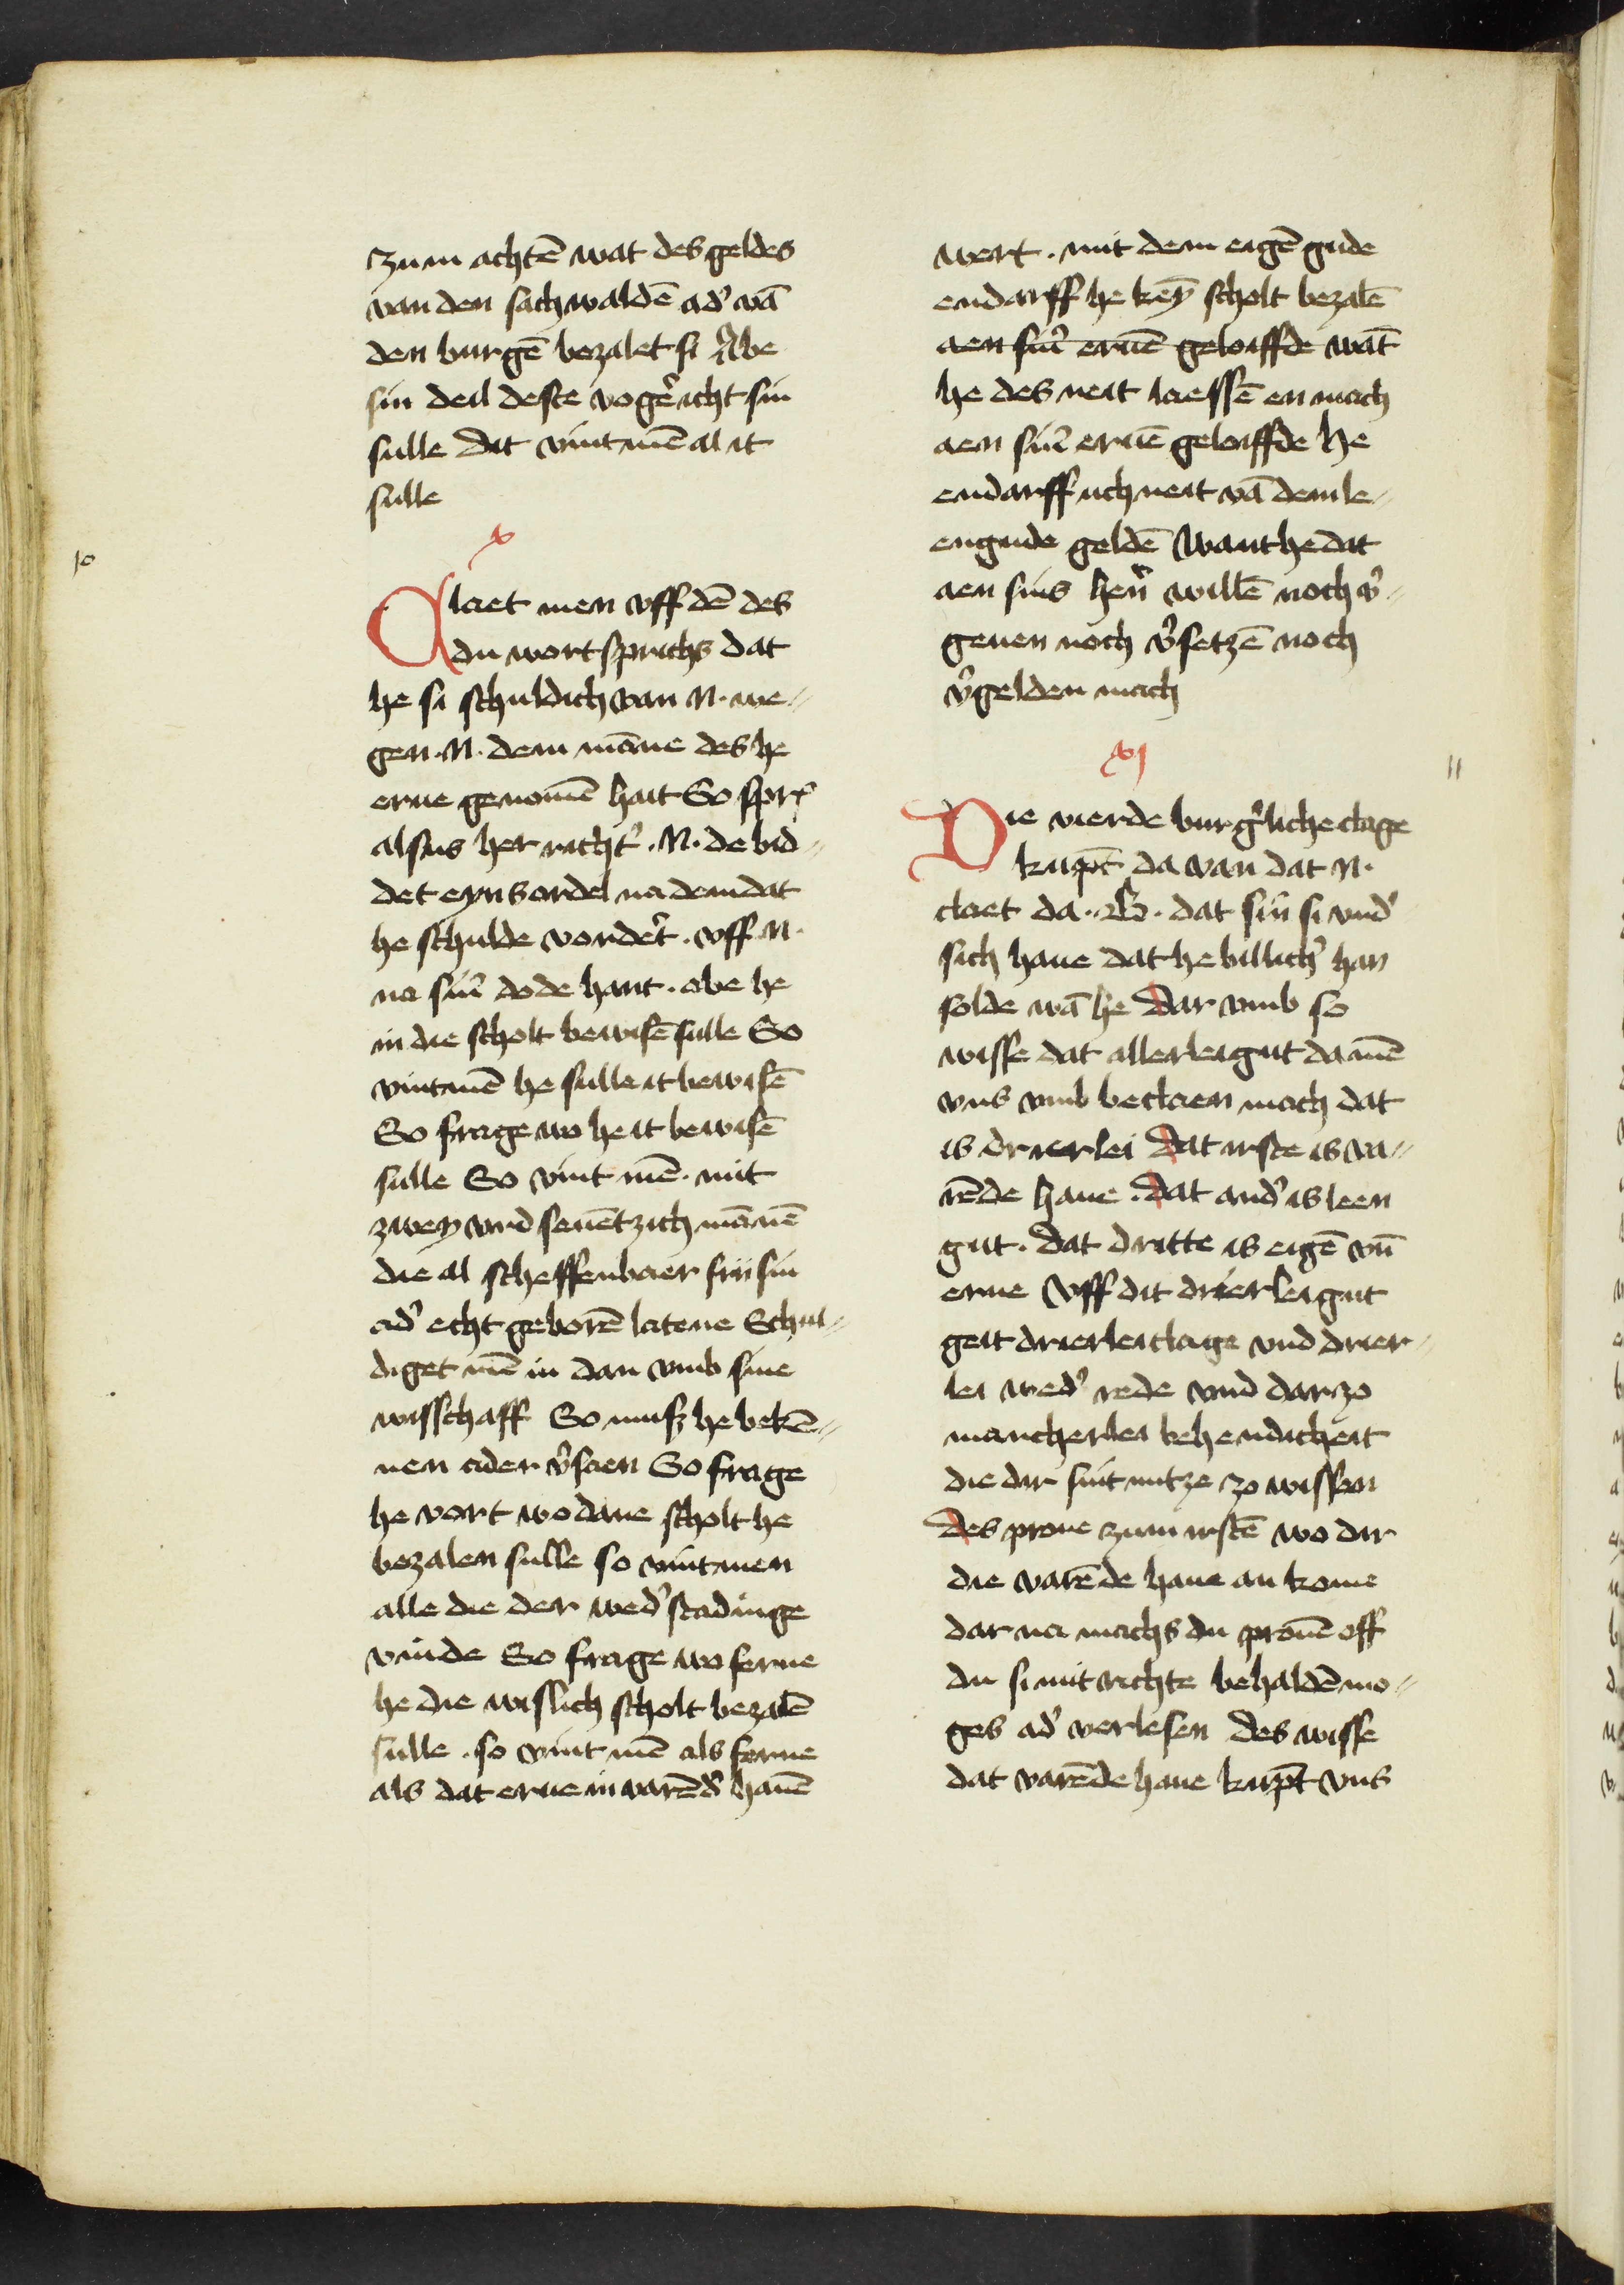 zum achtē wat des geldes
van den sachwaldē ad' vā
den burgē bezalet si Abe
sin deil deste vogē icht sin
sulle Dit vint mē al it
sulle
x
10
Claet men vff dē des
du wort sprichs dat
he si schuldich van N. we
gen. N. dem māne des he
erue genomē hait So sprx
alsus her richt'. N. de bid
det eyns ordel na dem dat
he schulde vordert. vff N.
na sin' dode hant. abe he
in die scholt bewisē sulle So
vint mē he sulle it bewisē
So frage wo he it bewisē
sulle So vint mē. mit
zwey vnd seuētzich mānē
die al scheffenbaer frij sin
ad' echt geborē latene Schul
diget mē in dan vmb sine
wisschaff So musz he bekē
nen ader v'saen So frage
he vort wo dane scholt he
bezalen sulle so vint men
alle die der wed'stadinge
vinde So frage wo ferne
he die wislich scholt bezalē
sulle. so vint mē als ferne
als dat erue in varēd' hauē
wert. mit dem eigē gude
endarff he kēy scholt bezalē
aen sin' eruē geloiffde wāt
he des neit laessē en mach
aen sin' eruē geloiffde he
endarff ich neit vā dem le
engude geldē Want he dat
aen sins hen' willē noch v'
geuen noch v'setzē noch
v'gelden mach
xj
11
Die vierde burg'liche clage
kupt da van dat N.
claet da. B. dat sin si vnd'
sich haue dat he billich' han
solde wā he Dar vmb so
wisse dat allerlei gut da mē
vns vmb beclaen mach dat
is drierlei Dat irste is va
rēde haue. Dat and' is leen
gut. Dat dritte is eigē vn̄
erue Vff dit drierlei gut
geit drierlei clage vnd drier
lei wed' rede vnd dar zo
mancherlei behendicheit
die dir sint nutze zo wissen
Des proue zum irstē wo dir
die varēde haue an kome
dar na machs du prouē off
du si mit richte behaldē mo
ges ad' verlesen Des wisse
dat varēde haue kupt vns